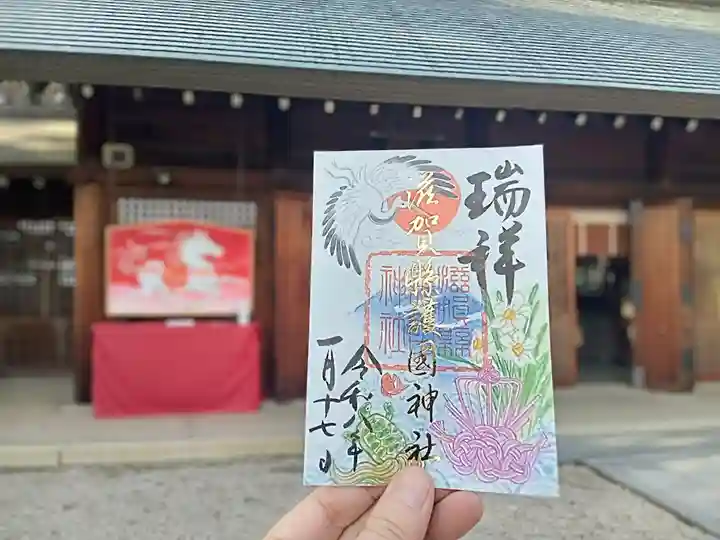 瑞祥
滋賀縣護國神社
滋賀縣
神社
令和八年
一月十七日